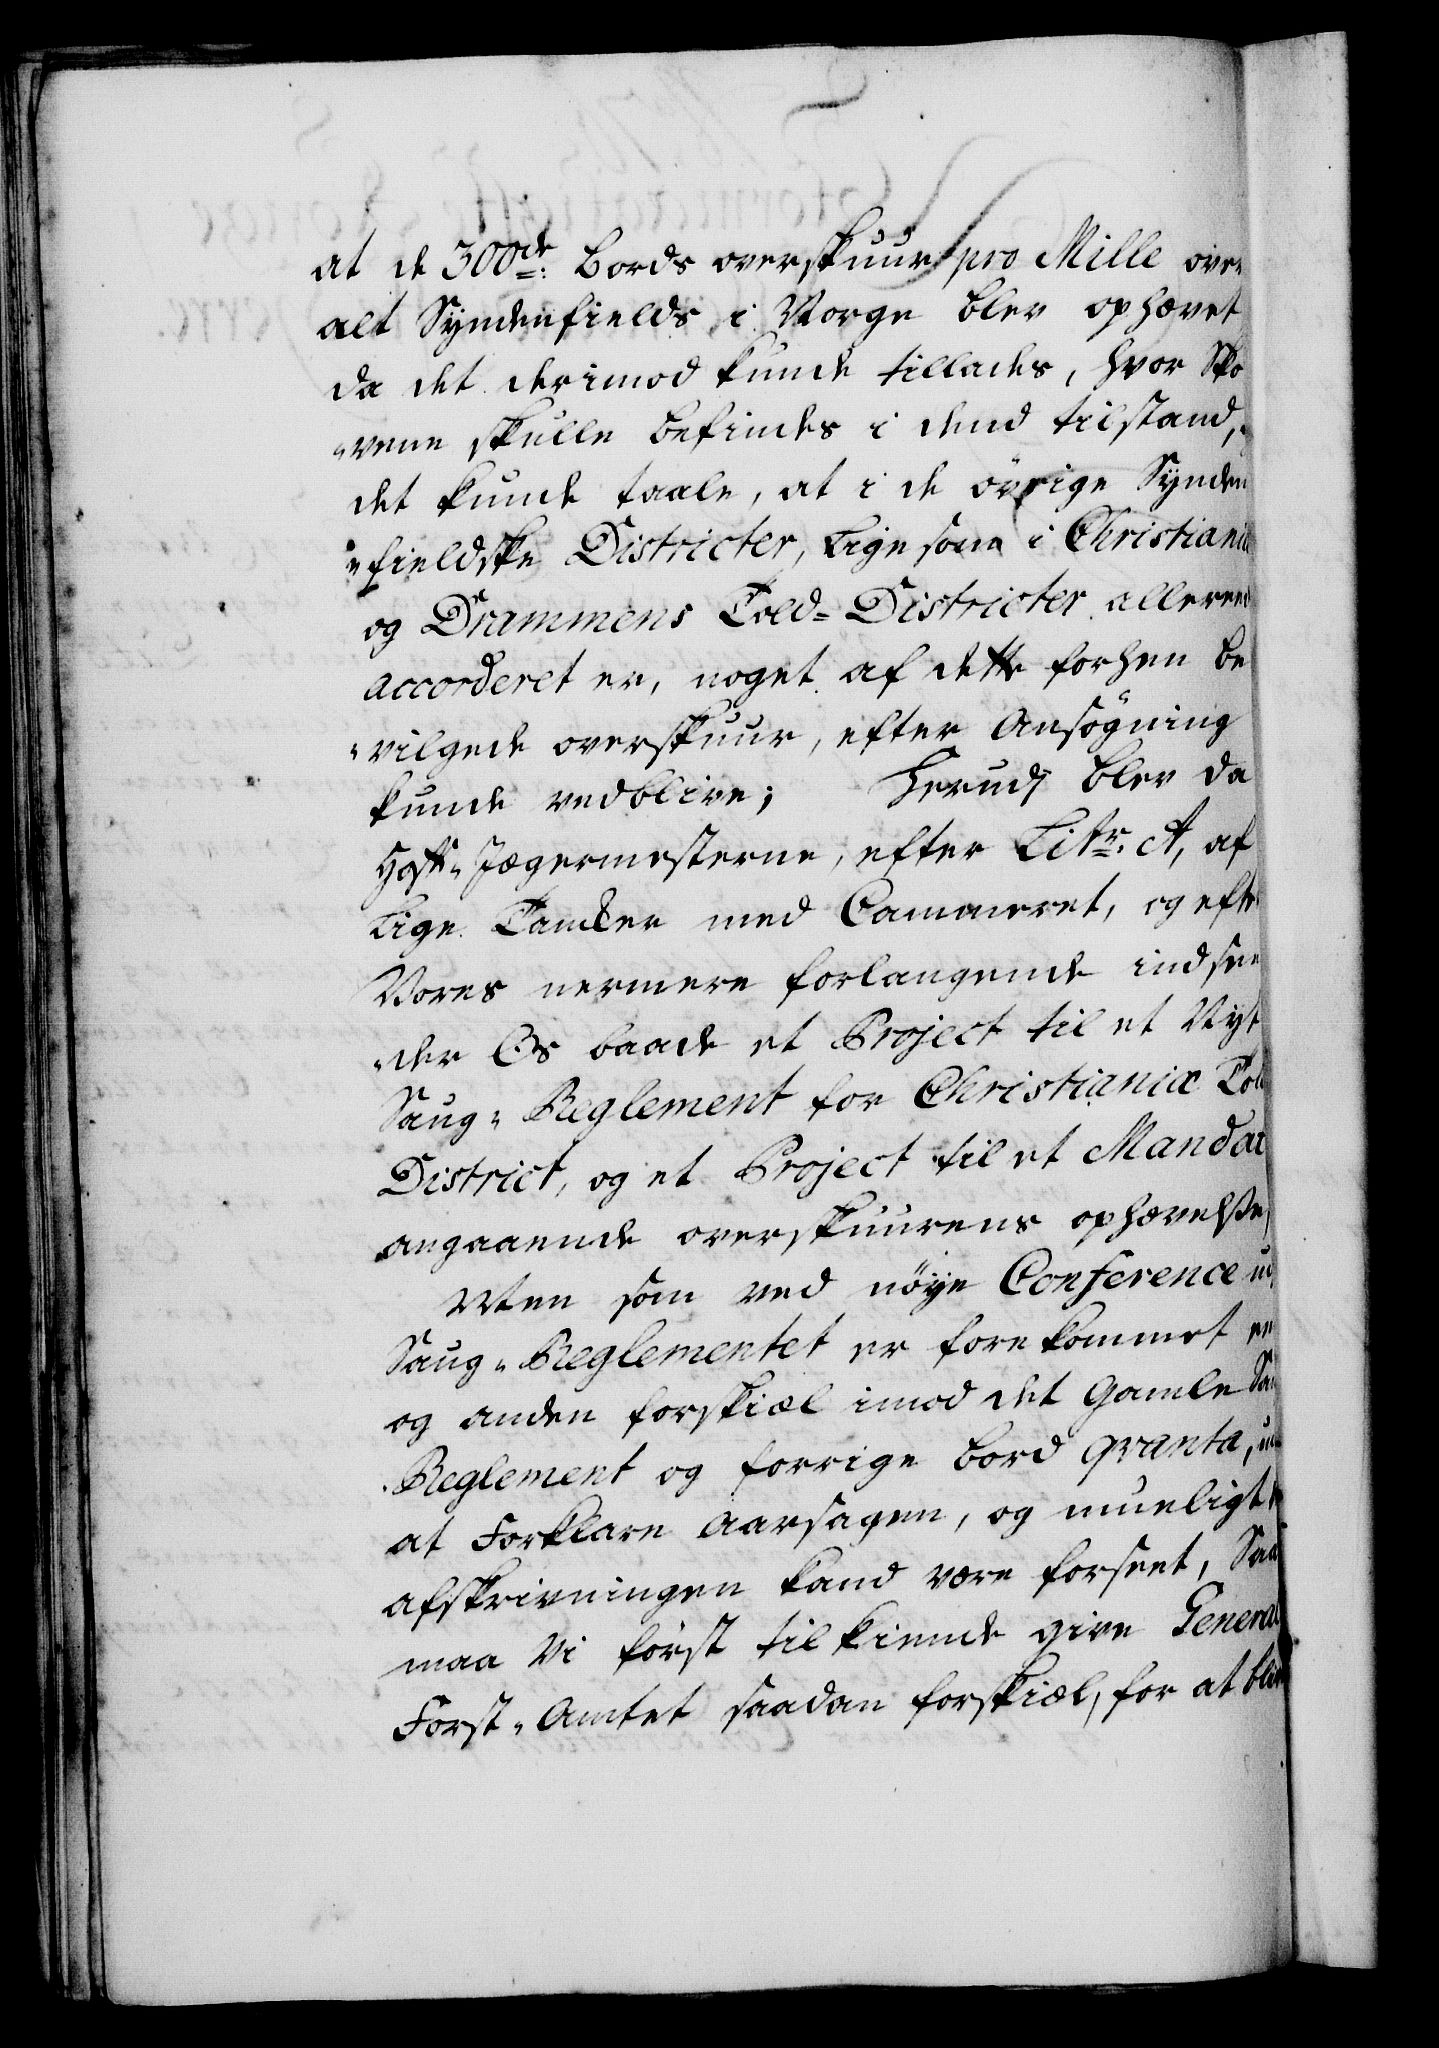 at de 300de: Bords overskuur pro Mille over
alt Syndenfields i Norge blev ophævet
da det derimod kunde tillades, hvor Sko
„vene skulle befindes i dend tilstand,
det kunde taale, at i de övrige Synden
„fieldske Districter, lige som i Christiania
og Drammens Told-Districter allereede
accorderet er, noget af dette forhen be
„vilgede overskuur, efter Ansøgning
kunde vedblive; Herudj blev da
Hoff-Jægermesterne, efter Litr. A, af
lige Tancker med Cammeret, og efter
Vores nermere forlangende indsen
„der Os baade et Project til et Nyt
Saug-Reglement for Christianiæ Told
District, og et Project til et Mandat
angaaende overskuurens ophævelse,
Men som ved nöye Conference ud
Saug-Reglementet er forekommet en
og anden forskiæl imod det Gamle Saug
Reglement og forrige bord qvanta, uden
at Forklare Aarsagen, og mueligt
afskrivningen kand være forseet, Saa
maa Vi först tilkiende give General
Forst-Amtet saadan forskiæl, for at blive